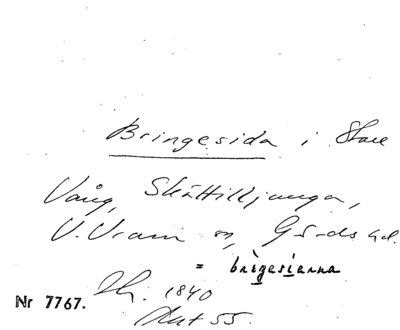 Bringesida i Stare
Vång, Skättilljunga,
V. Vram m, Gärds hd.
= bringesianna
Nr 7767.
1840
55.